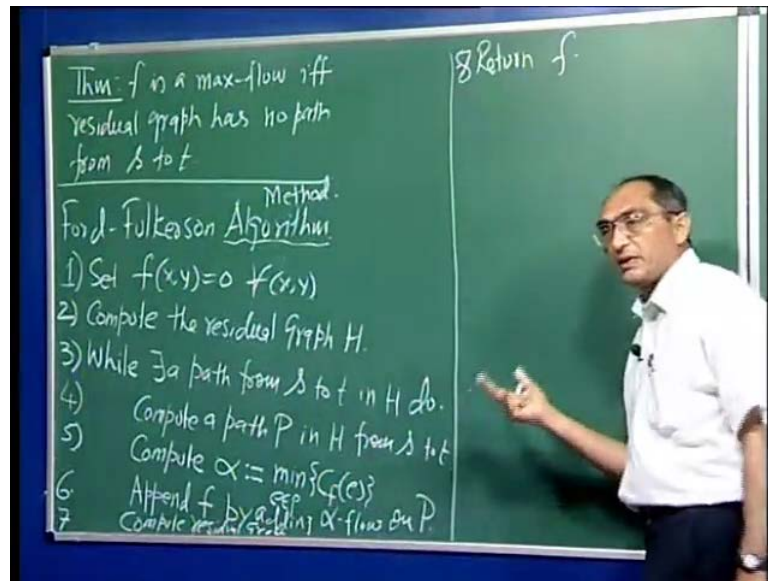 Thm: f is a max-flow iff
residual graph has no path
from s to t
Method.
Ford-Fulkerson Algorithm
1) Set f(x,y)=0 ∀(x,y)
2) Compute the residual Graph H.
3) While ∃ a path from s to t in H do.
4) Compute a path P in H from s to t
5) Compute α := min{C_f(e)}
e∈P
6 Append f by adding α-flow on P.
7 Compute residual graph
8 Return f.